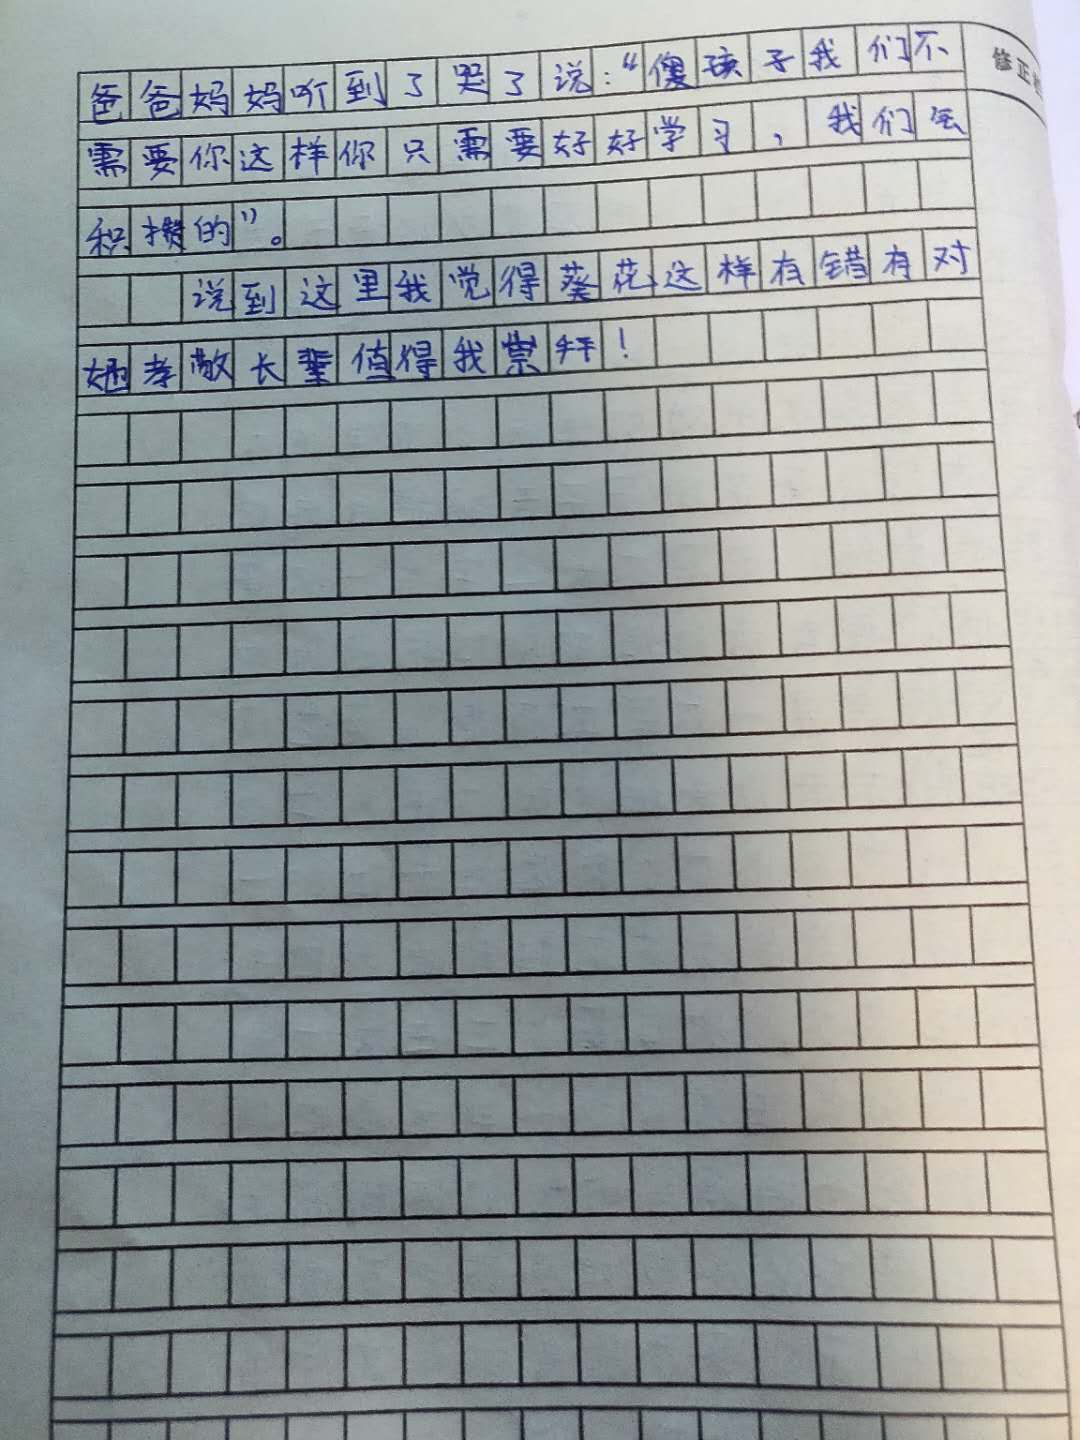 爸爸妈妈听到了哭了说：“傻孩子我们不
需要你这样你只需要好好学习，我们会
积攒的”。
说到这里我觉得葵花这样有错有对
她孝敬长辈值得我崇拜！
修正